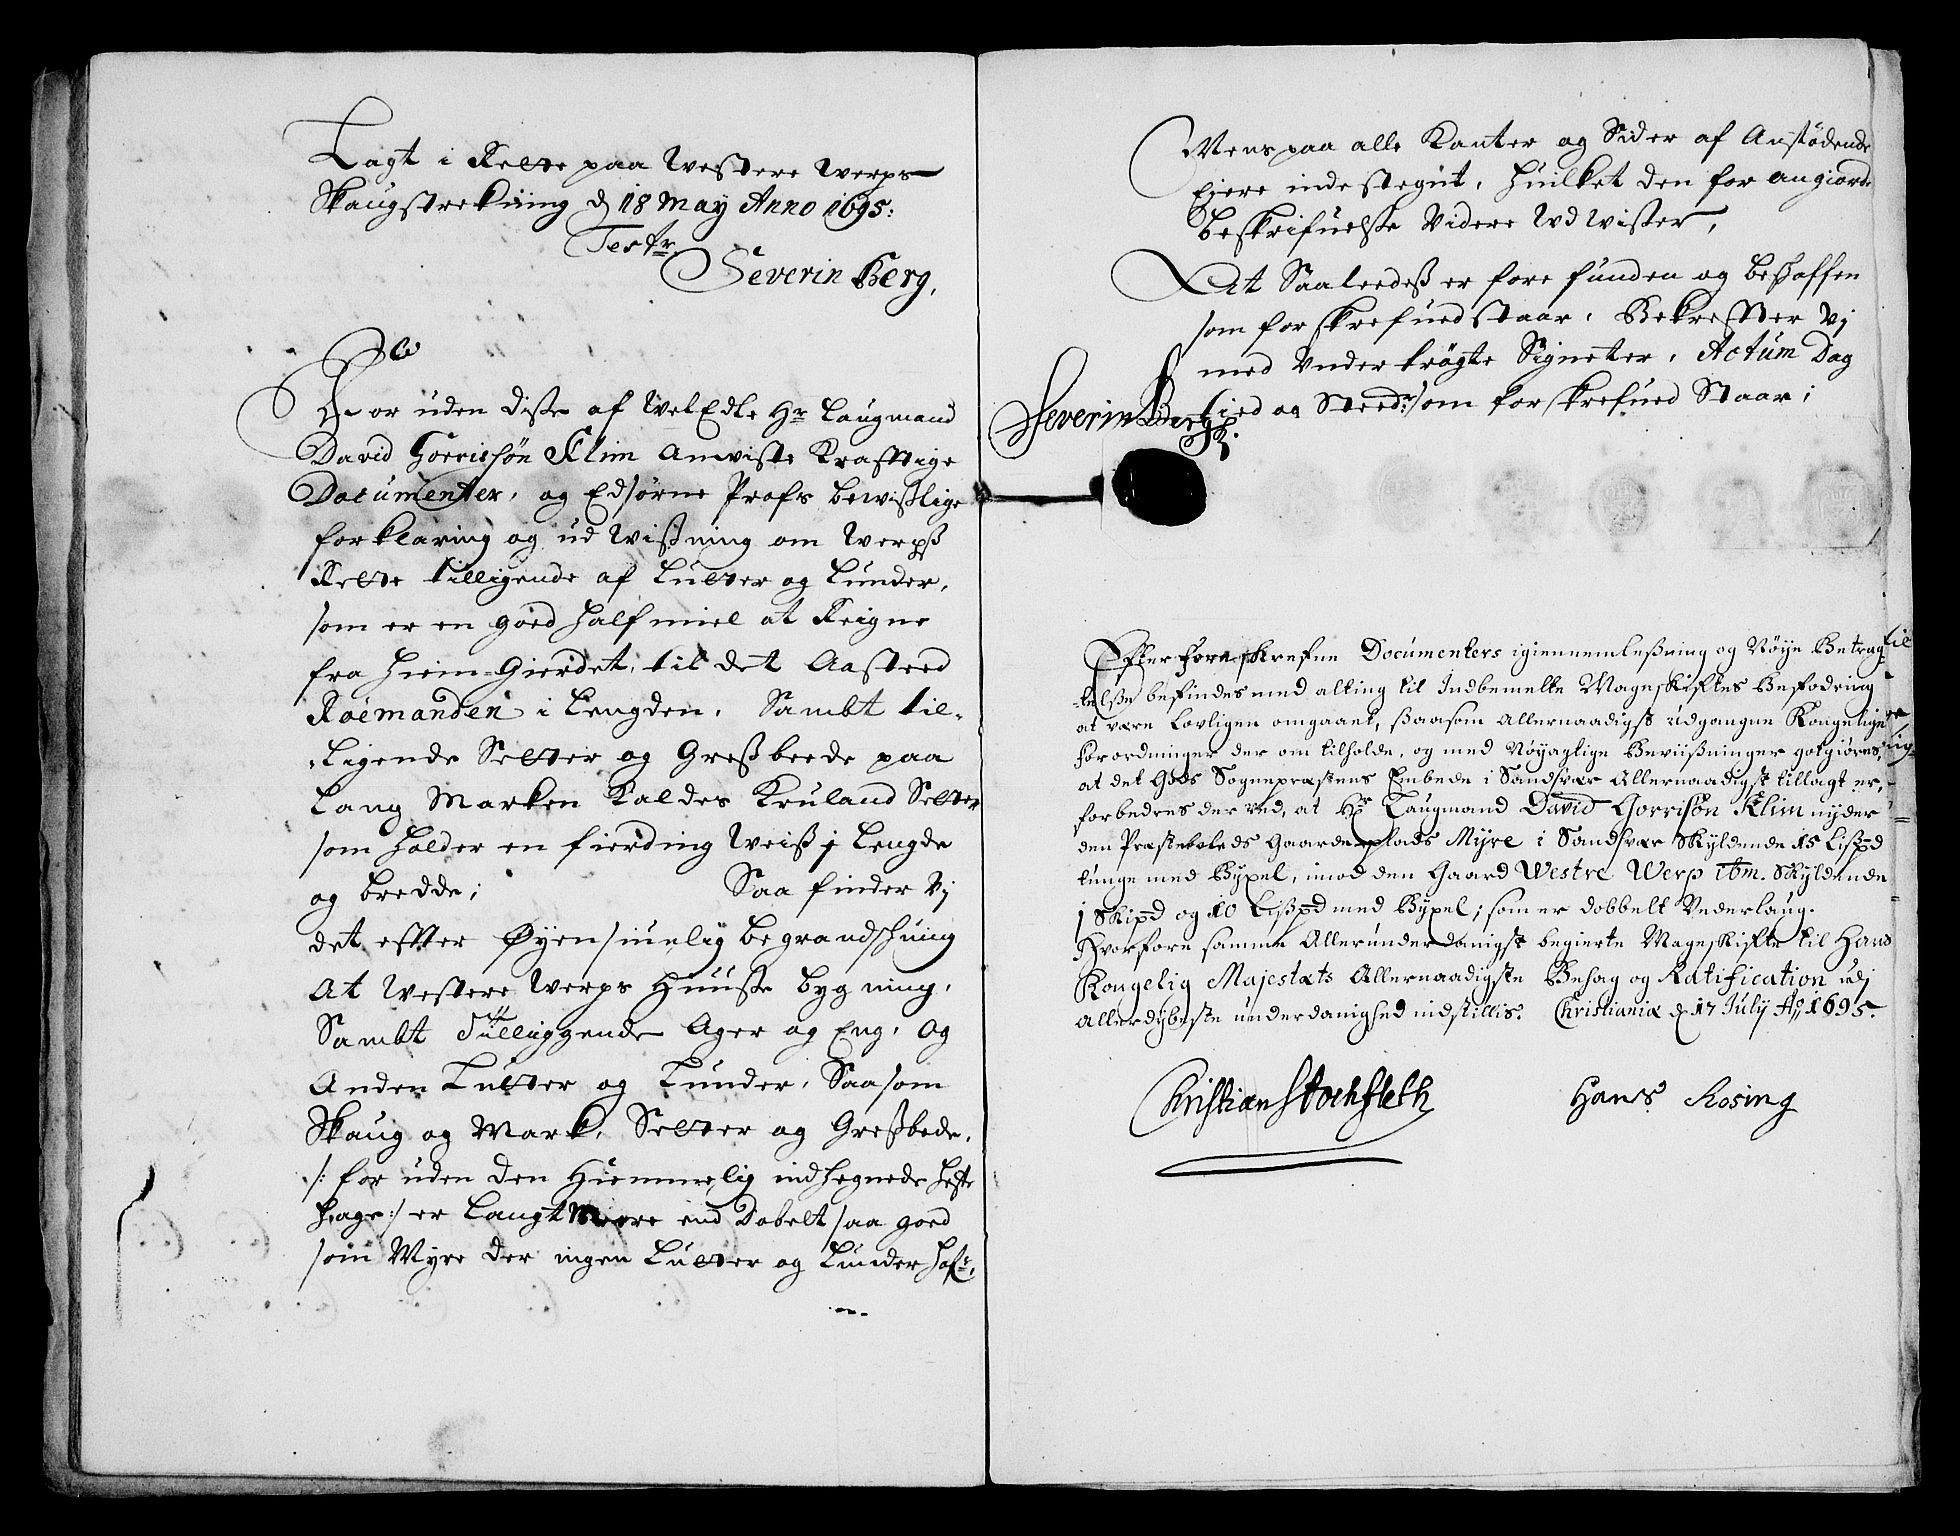 Lagt i Rette paa Westere Werps
Skaugstrekning d 18 May Anno 1695:
Test:
Severin Berg,
For uden disse af WelEdle Hr Laugmand
David Gorrissøn Klim Anviste Krafftige
Documenter, og Edsørne Profs bewißlige
forklaring og udwißning om Werpß
Rette tilligende af Lutter og Lunder,
som er en goed half miel at Reigne
fra Hiem-Gierdet, til det Aasteed
Roemanden i Lengden, Sambt til-
-ligende Setter og Greßbeede paa
Lang Marken Kaldes Kruland Setter
som holder en fierding Weiß j Lengde
og bredde; Saa finder Vj
det effter Øyensiunelig begrandschning
At Westere Werps Huuse bygning,
Sambt Tilliggende Ager og Eng, og
Anden Lutter og Lunder, Saasom
Skaug og Mark, Setter og Greßbede,
/: for uden den Hiemmelig indhegnede Heste
Hage :/ er Langt Meere end Dobelt saa goed
som Myre der ingen Lutter og Lunder hafr,
Mens paa alle Kanter og Sider af Anstødende
Ejere indestegnt, Huilket den for angiorde
beskrifuelse Videre Udwiser,
At Saaleedeß er forefunden og beschaffen
som forskrefued staar, Bekreffter Vj
med Undertrøgte Signeter, Actum Dag
tied og Steed: som forskrefued Staar;
Severin Berg
Efter foreskrefne Documenters igiennemleßning og Nøye Betrag-
-telse befindes med alting til Indbemelte Mageskiftes Befodring
at være Lovligen omgaaet, ßaasom Allernaadigst udgangne Kongelige
Forordninger der om tilholde, og med Nøyaglige Beviißninger gotgiøres,
at det Gods Sognepræstens Embede i Sandsvær Allernaadigst tillagt er,
forbedres der ved, at Hr Laugmand David Gorrisøn Klim nyder
den Præstebolets Gaardeplads Myre i Sandsvær Skyldende 15 Lißpd
tunge med Byxel, imod den Gaard Westre Werp ibm. Skyldende
1 Skipd og 10 Lißpd med Byxel; som er dobbelt Vederlaug.
Hvorfore samme Allerunderdanigst begierte Mageskifte til Hans
Kongelig Majestæts Allernaadigste Behag og Ratification udj
allerdybeste underdanighed indstillis. Christianiæ d 17 July Ao 1695.
Christian Stockfleth Hans Rosing